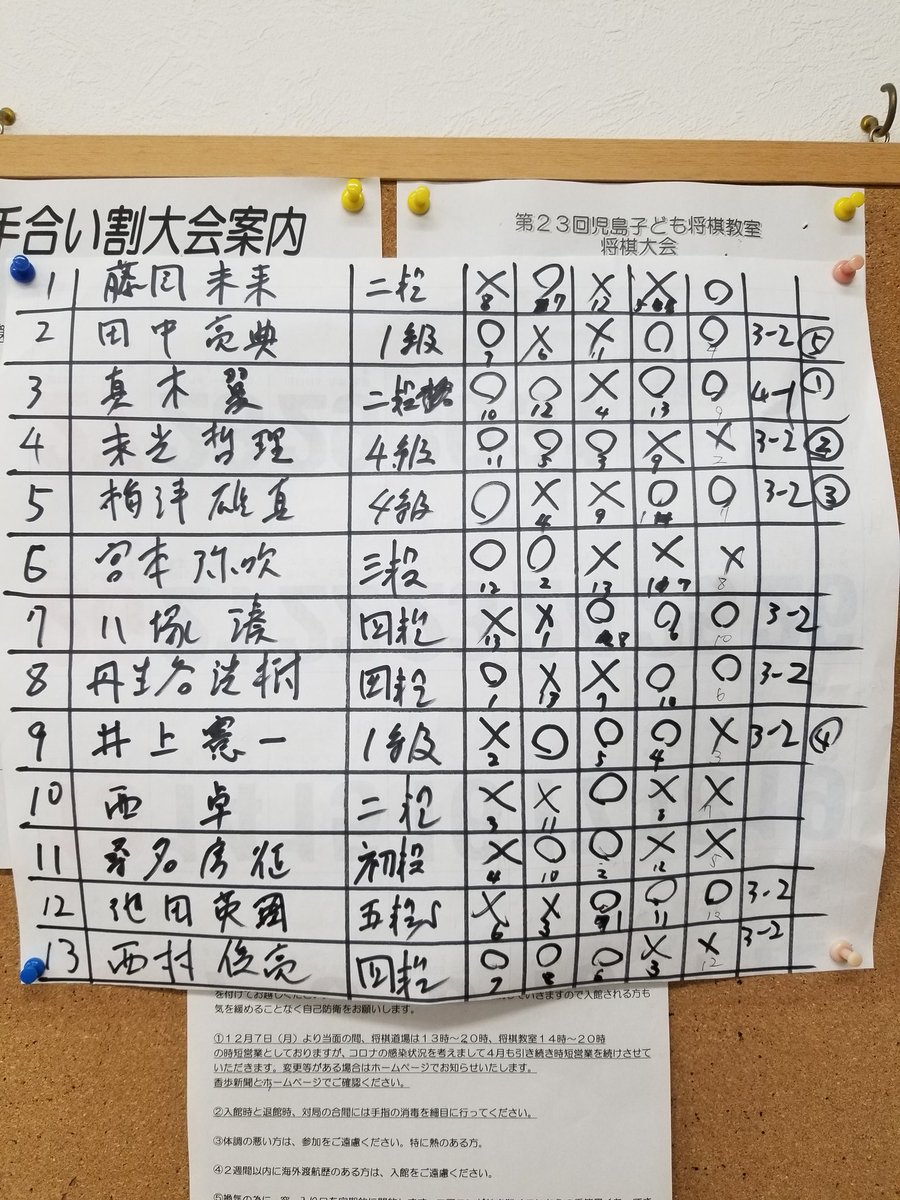 手合い割大会案内
第23回児島子ども将棋教室
将棋大会
1 藤田未来 二段 × ○ × × ○
8 7 12
2 田中亮典 1級 ○ × × ○ ○ 3-2 ⑤
7 6 11
3 真木翼 二段 ○ ○ × ○ ○ 4-1 ①
10 12 4 13 9
4 末光哲理 4級 ○ ○ ○ × × 3-2 ②
11 5 3 9 2
5 梅津雄真 4級 ○ × × ○ ○ 3-2 ③
4 9 11
6 宮本弥吹 三段 ○ ○ × × ×
12 2 13 7 8
7 川塚湊 四段 × × ○ ○ ○ 3-2
13 1 8 6 10
8 丹生谷 樹 四段 ○ × × ○ ○ 3-2
1 13 7 10 6
9 井上憲一 1級 × ○ ○ ○ × 3-2 ④
2 5 4 3
10 西卓 二段 × × ○ × ×
3 11 8 7
11 桑名 征 初段 × ○ ○ × ×
4 10 2 12 5
12 池田英 五段 × × ○ ○ ○ 3-2
6 3 1 11 13
13 西村俊亮 四段 ○ ○ ○ × × 3-2
7 8 6 3 12
を付けてお越しくださ していきますので入館される方も
気を緩めることなく自己防衛をお願いします。
①12月7日(月)より当面の間、将棋道場は13時～20時、将棋教室14時～20時
の時短営業としておりますが、コロナの感染状況を考えまして4月も引き続き時短営業を続けさせて
いただきます。変更等がある場合はホームページでお知らせいたします。
香歩新聞とホームページでご確認ください。
②入館時と退館時、対局の合間には手指の消毒を細目に行ってください。
③体調の悪い方は、参加をご遠慮ください。特に熱のある方。
④2週間以内に海外渡航歴のある方は、入館をご遠慮ください。